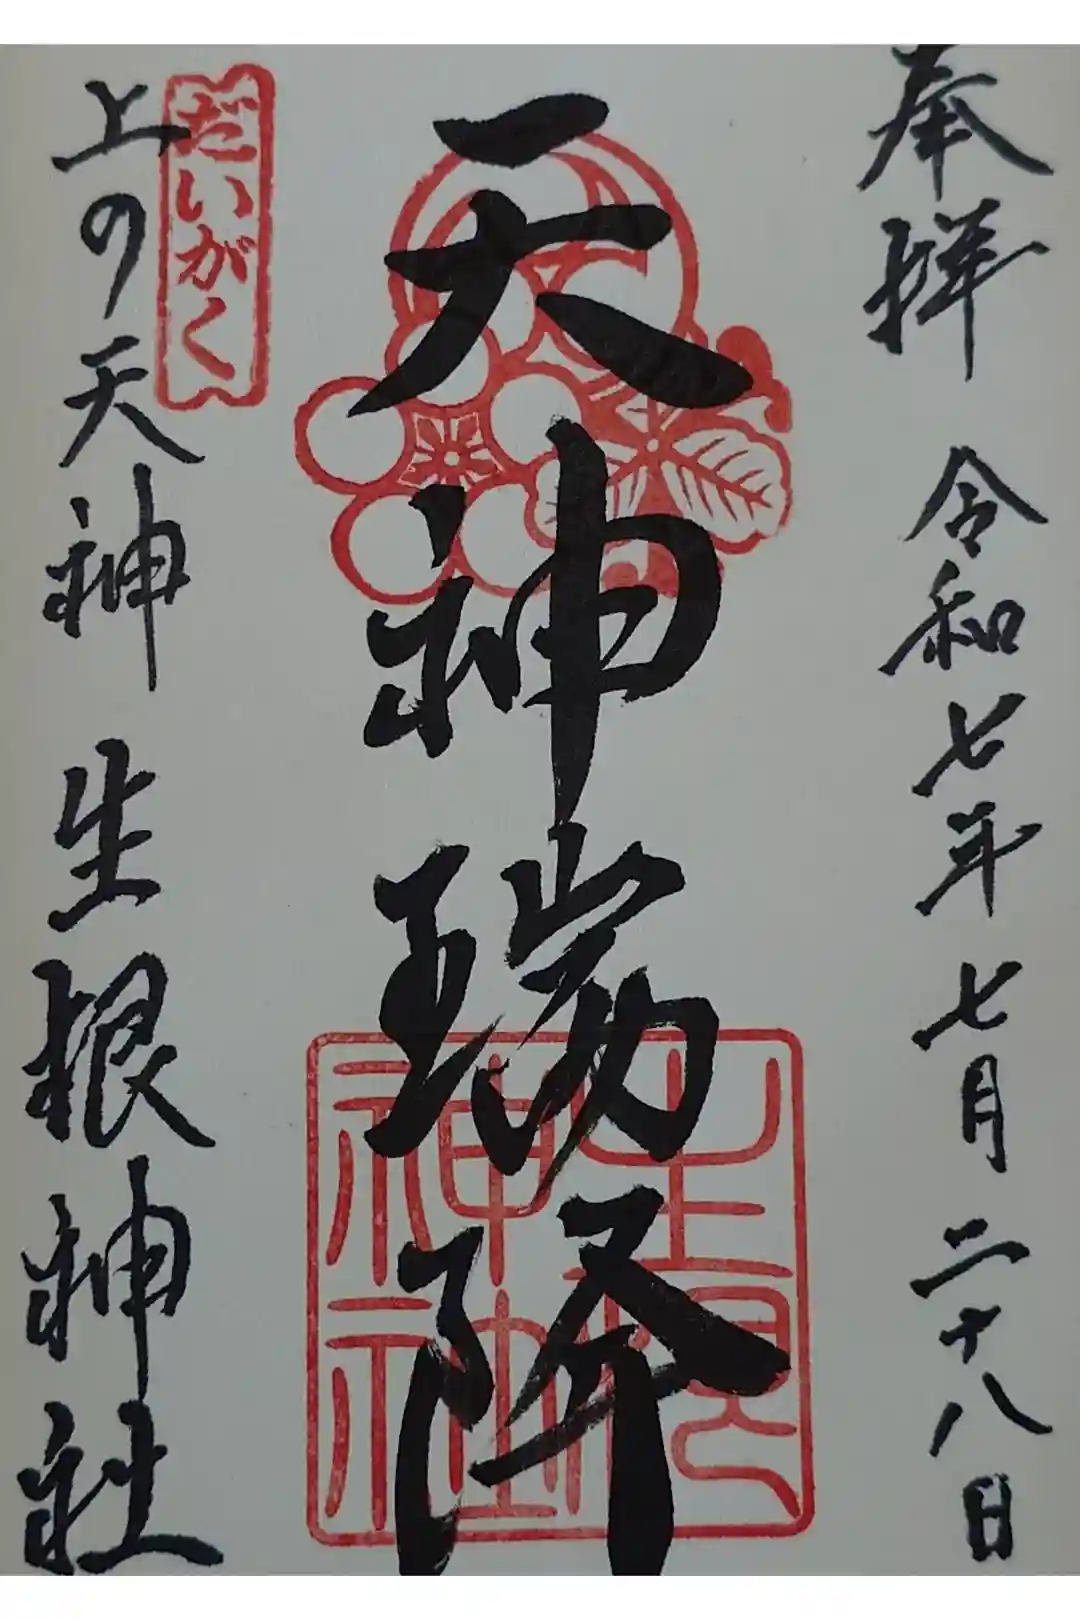 奉拝 令和七年七月二十八日
天神瑞降
生根神社
だいがく
上の天神 生根神社